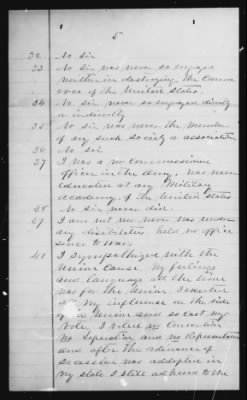 5
32 No Sir
33 No Sir was never so engaged
neither in destroying the Commerce
over of the United States
34 No Sir never so engaged directly
or indirectly
35 No Sir was never the member
of any such Society or association
36 No Sir
37 I was a non Commissioned
officer in the Army, was never
educated at any Military
Academy of the United States
38 No Sir never did
39 I am not nor never was under
any disibilities. held no office
since the War.
40 I Sympathized with the
Union Cause, My feelings
and language all the time
was for the Union I exerted
all My influence on the side
of the Union and so cast my
Vote. I voted no Convention
No Separation and no Representation
and after the ordinance of
Secession was adopted in
my state I still adhered to the